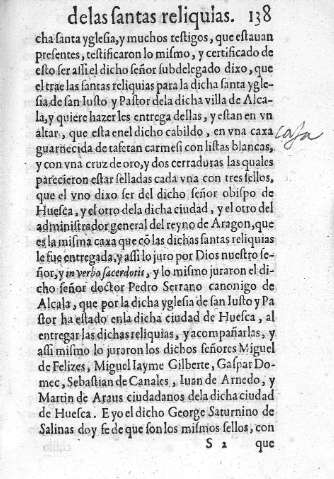 delas santas reliquias. 138
cha santa yglesia, y muchos testigos, que estauan
presentes, testificaron lo mismo, y certificado de
esto ser assi el dicho señor subdelegado dixo, que
el trae las santas reliquias para la dicha santa ygle-
sia de san Iusto y Pastor dela dicha villa de Alca-
la, y quiere hazer les entrega dellas, y estan en vn
altar, que esta enel dicho cabildo, en vna caxa
caja
guarnecida de tafetan carmesi con listas blancas,
y con vna cruz de oro, y dos cerraduras las quales
parecieron estar selladas cada vna con tres sellos,
que el vno dixo ser del dicho señor obispo de
Huesca, y el otro dela dicha ciudad, y el otro del
administrador general del reyno de Aragon, que
es la misma caxa que cō las dichas santas reliquias
le fue entregada, y assi lo juro por Dios nuestro se-
ñor, y in verbo sacerdotis, y lo mismo juraron el di-
cho señor doctor Pedro Serrano canonigo de
Alcala, que por la dicha yglesia de san Iusto, y Pa
stor ha estado enla dicha ciudad de Huesca, al
entregar las dichas reliquias, y acompañarlas, y
assi mismo lo juraron los dichos señores Miguel
de Felizes, Miguel Iayme Gilberte, Gaspar Do-
mec, Sebastian de Canales, Iuan de Arnedo, y
Martin de Araus ciudadanos dela dicha ciudad
de Huesca. E yo el dicho George Saturnino de
Salinas doy fe de que son los mismos sellos, con
S 2 que